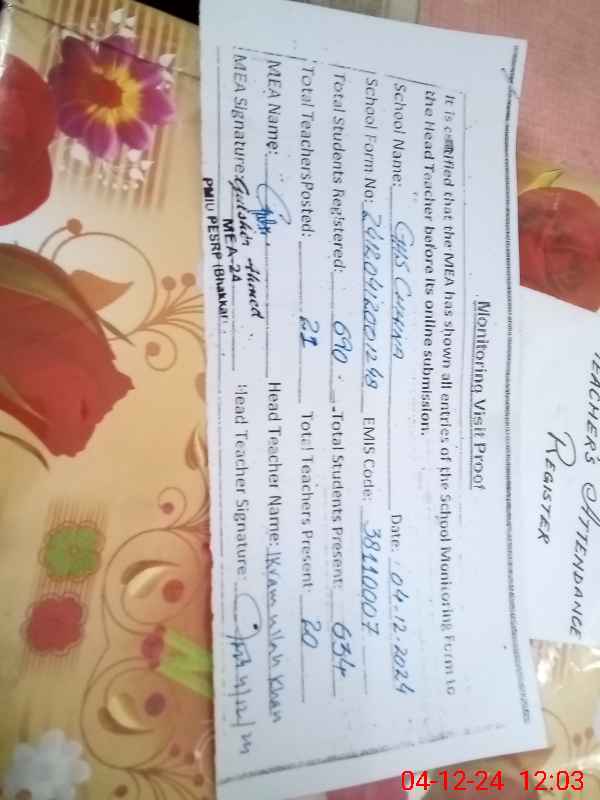 Monitoring Visit Proof
It is certified that the MEA has shown all entries of the School Monitoring Form to
the Head Teacher before its online submission.
School Name: GHS CHHINA Date: 04.12.2024
School Form No: 24120412001248 EMIS Code: 38110007
Total Students Registered: 690 Total Students Present: 634
Total Teachers Posted: 21 Total Teachers Present: 20
MEA Name: Head Teacher Name: Ikram Ullah Khan
MEA Signature: Gulshir Ahmed Head Teacher Signature: 4/12/24
MEA-24
PMIU PESRP (Bhakkar)
TEACHER'S ATTENDANCE
REGISTER
04-12-24 12:03